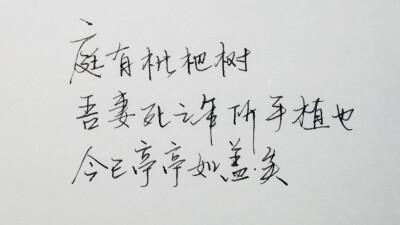 庭有枇杷树
吾妻死之年所手植也
今已亭亭如盖矣